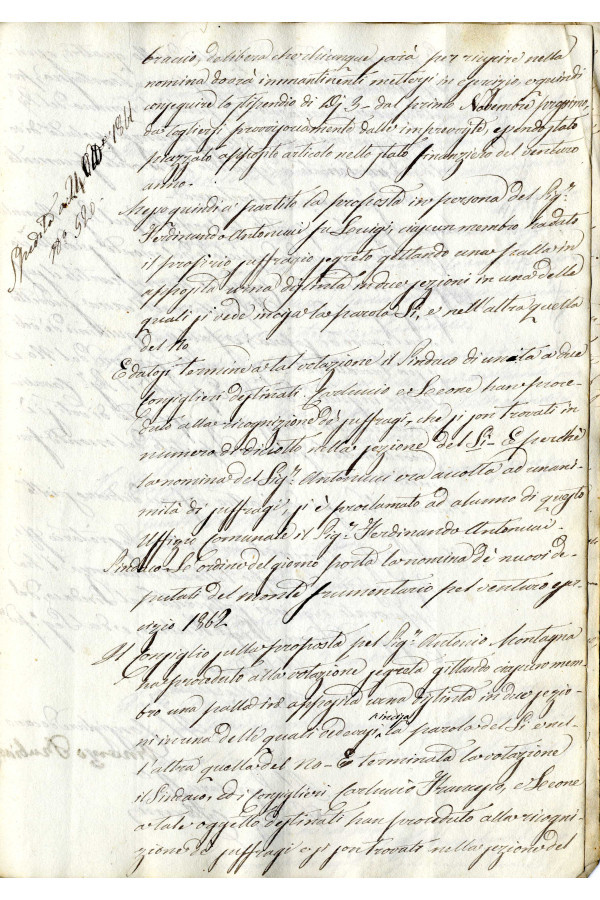 braccio, delibera che chiunque sarà per riuscire nella
nomina dovrà inmantinenti mettersi in esercizio, e quindi
conseguire lo stipendio di D. 3 - dal primo Novembre prossimo,
da togliersi provvisoriamente dalle impreviste, essendo stato
piazzato apposito articolo nello stato finanziero del venturo
anno.
Spedita a 24 8bre 1861
N° 520
Messo quindi a partito la proposta in persona del Sigr.
Ferdinando Antonucci fu Luigi, ciascun membro ha dato
il proprio suffragio segreto gettando una palla in
apposita urna distinta in due sezioni in una delle
quali si vede mossa la parola Sì, e nell'altra quella
del No
E datosi termine a tal votazione il Sindaco di unita a due
Consiglieri destinati Carluccio e Leone han proce-
duto alla ricognizione de' suffragi, che si son trovati in
numero di diciotto nella sezione del Sì - E perchè
la nomina del Sigr. Antonucci era accolta ad unani-
mità di suffragi, si è proclamato ad alunno di questo
Uffizio comunale il Sigr. Ferdinando Antonucci -
Sindaco - Lo ordine del giorno porta la nomina de' nuovi de-
putati del monte frumentario pel venturo eser-
cizio 1862
Il Consiglio sulla proposta pel Sigr. Antonio Montagna
ha proceduto alla votazione segreta gittando ciascuno mem-
bro una palla in apposita urna distinta in due sezio-
ni in una delle quali vedevasi incisa la parola del Sì e nel-
l'altra quella del No - E terminata la votazione
il Sindaco, ed i Consiglieri Carluccio e Leone
a tale oggetto destinati han proceduto alla ricogni-
zione de' suffragi e si son trovati nella sezione del